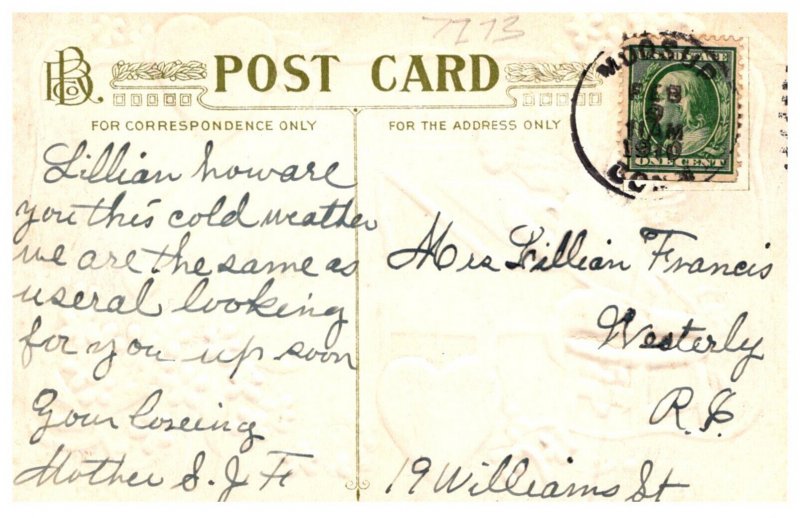 7773
BRCo
POST CARD
FOR CORRESPONDENCE ONLY
FOR THE ADDRESS ONLY
FEB
AM
1910
CONN
ONE CENT
Lillian howare
you this cold weather
we are the same as
useral looking
for you up soon
Your loseing
Mother S. J. F
Mrs Lillian Francis
Westerly
R. I.
19 Williams St